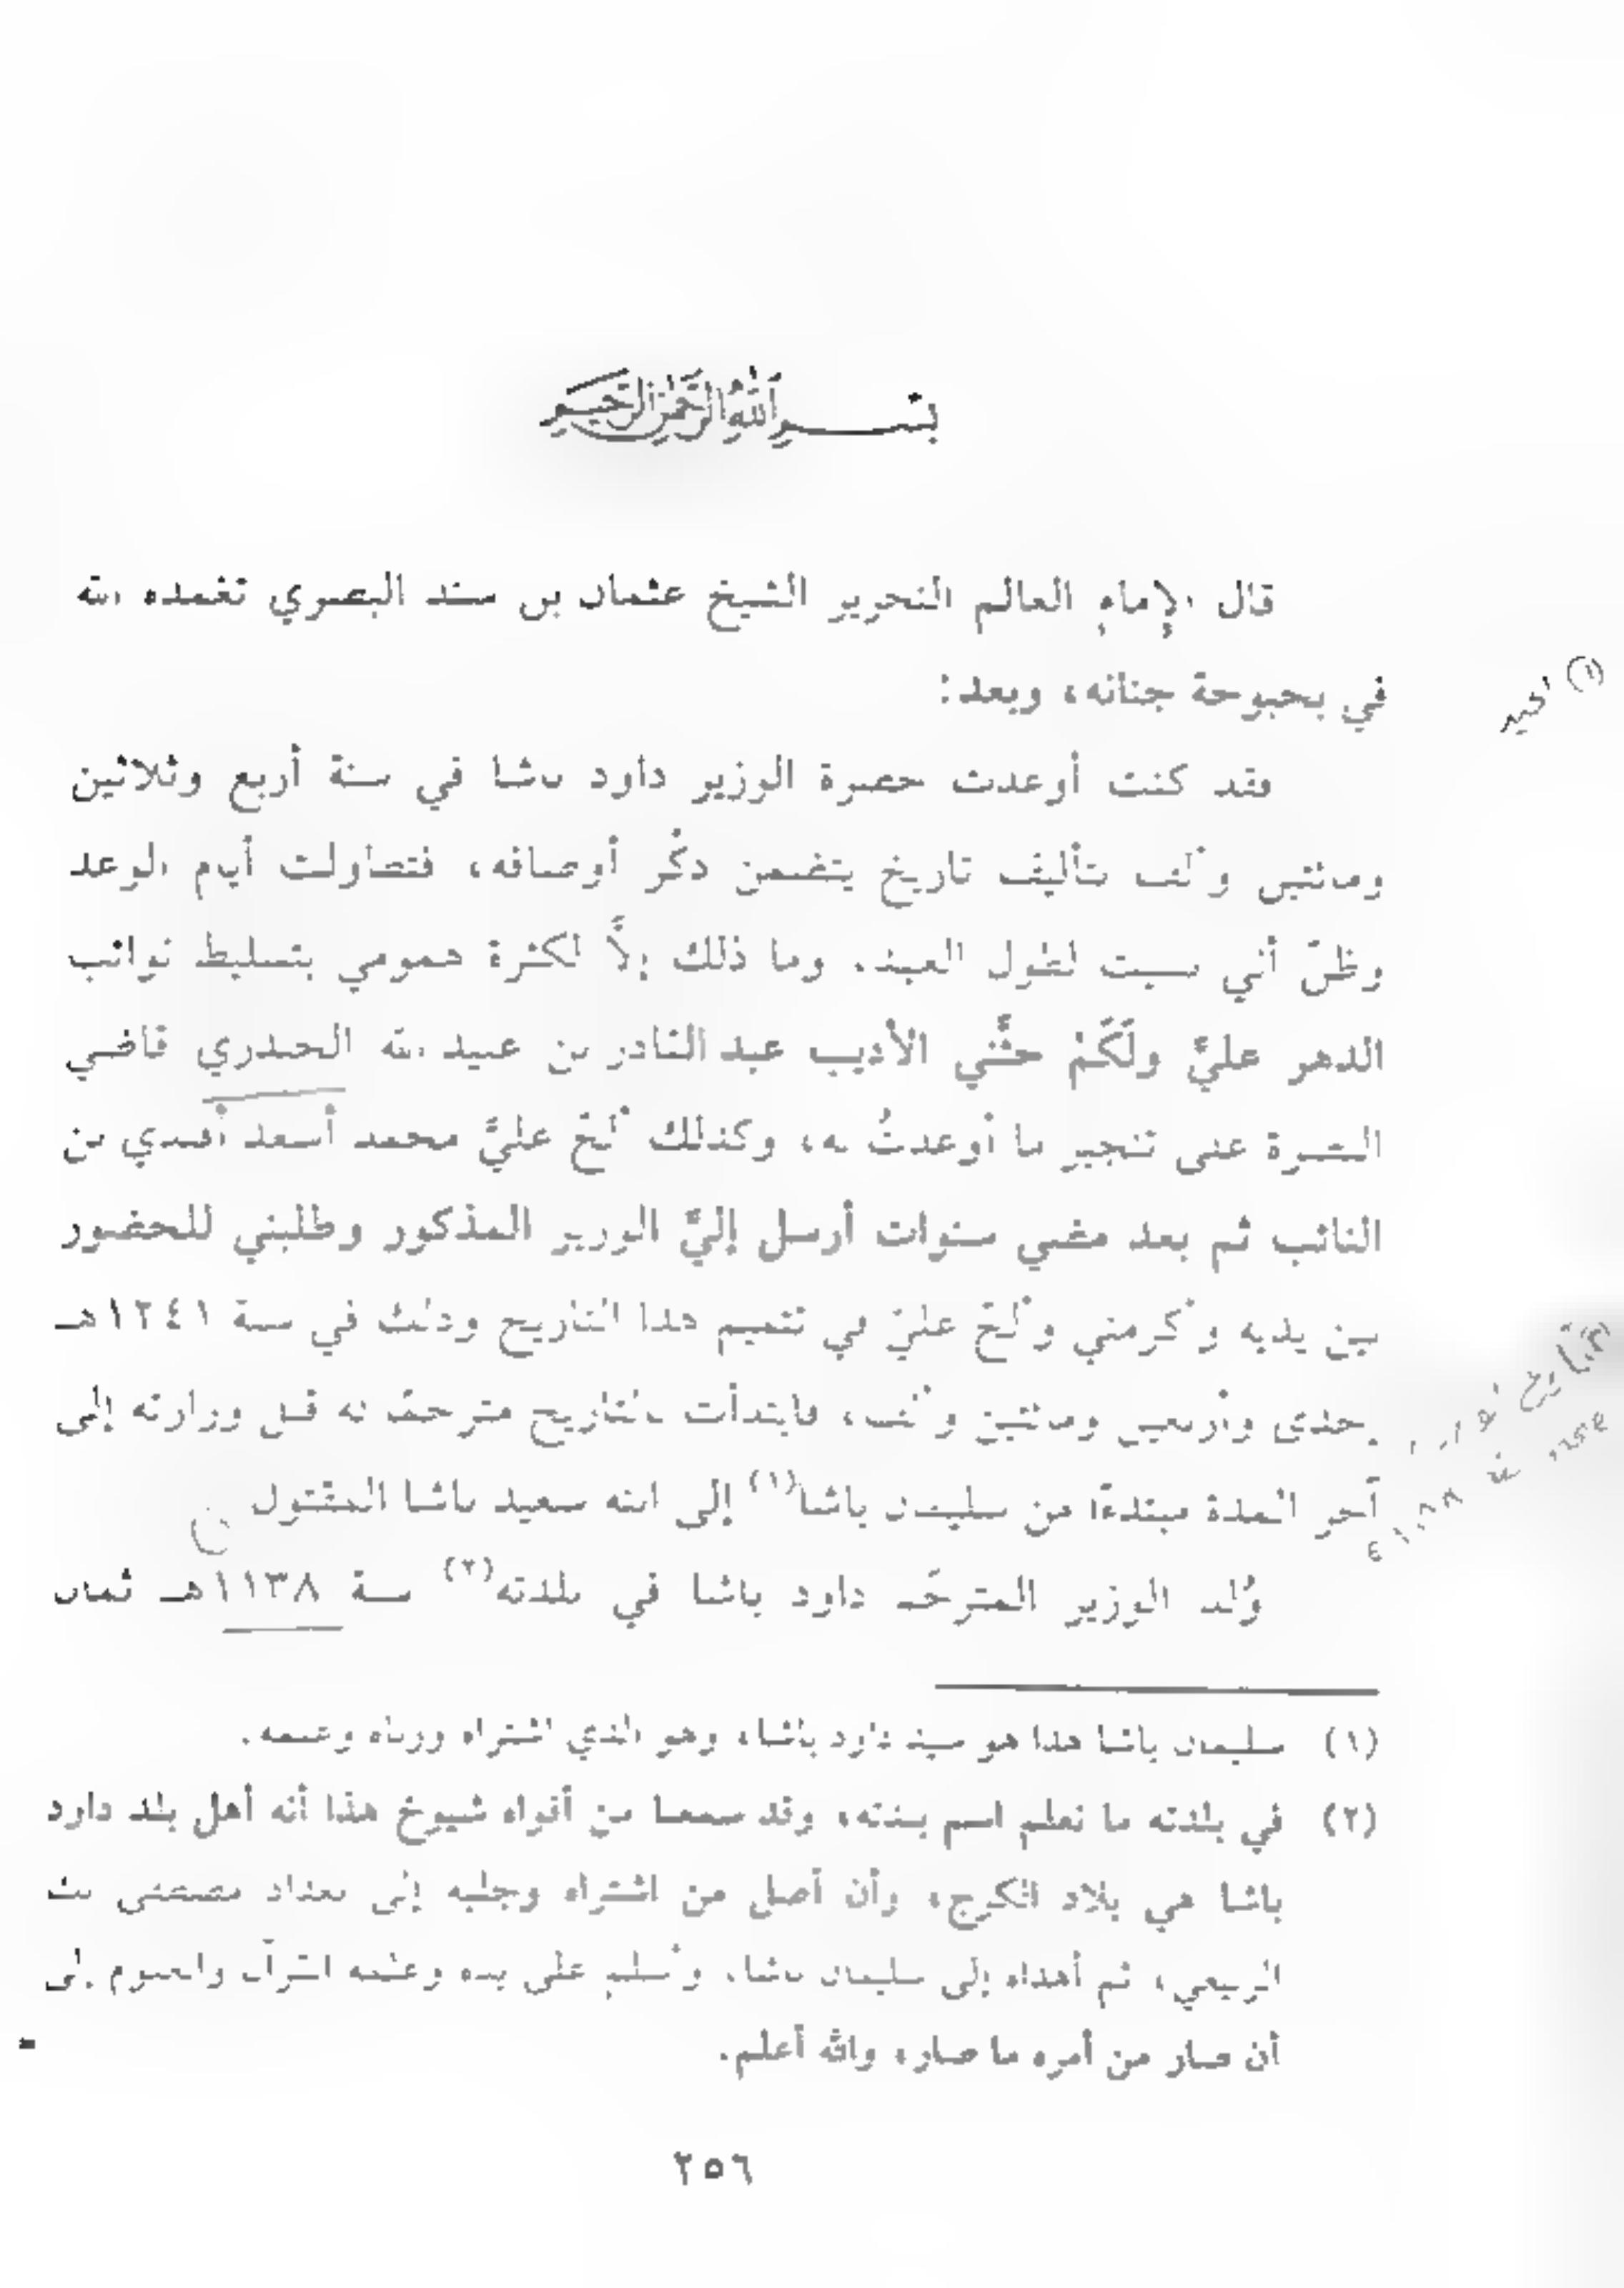 بسم الله الرحمن الرحيم
قال الإمام العالم النحرير الشيخ عثمان بن سند البصري تغمده الله
في بحبوحة جنانه، وبعد:
فقد كنت أوعدت حضرة الوزير داود باشا في سنة أربع وثلاثين
ومائتين وألف بتأليف تاريخ يتضمن ذكْر أوصافه، فتطاولت أيام الوعد
وظنّ أني نسيت لطول العهد. وما ذلك إلاَّ لكثرة همومي بتسليط نوائب
الدهر عليَّ ولَكَمْ حثَّني الأديب عبد القادر بن عبيد الله الحيدري قاضي
البصرة على تنجيز ما أوعدتُ به، وكذلك ألحّ عليَّ محمد أسعد أفندي بن
النائب ثم بعد مضي سنوات أرسل إليَّ الوزير المذكور وطلبني للحضور
بين يديه وأكرمني وألحّ عليّ في تتميم هذا التاريخ وذلك في سنة ١٢٤١هـ
إحدى وأربعين ومائتين وألف، فابتدأت بالتاريخ مترجمًا له قبل وزارته إلى
آخر المدة مبتدءًا من سليمان باشا(١) إلى ابنه سعيد باشا المقتول
وُلد الوزير المترجَم داود باشا في بلدته(٢) سنة ١١٣٨هـ ثمان
(١) سليمان باشا هذا هو سيد داود باشا، وهو الذي اشتراه ورباه وعلمه.
(٢) في بلدته ما نعلم اسم بلدته، وقد سمعنا من أفواه شيوخ هذا أنه أهل بلد داود
باشا هي بلاد الكرج، وأن أصل من اشتراه وجلبه إلى بغداد مصطفى بك
الربيعي، ثم أهداه إلى سليمان باشا، وأسلم على يده وعلمه القرآن والعلوم إلى
أن صار من أمره ما صار، والله أعلم.
٢٥٦